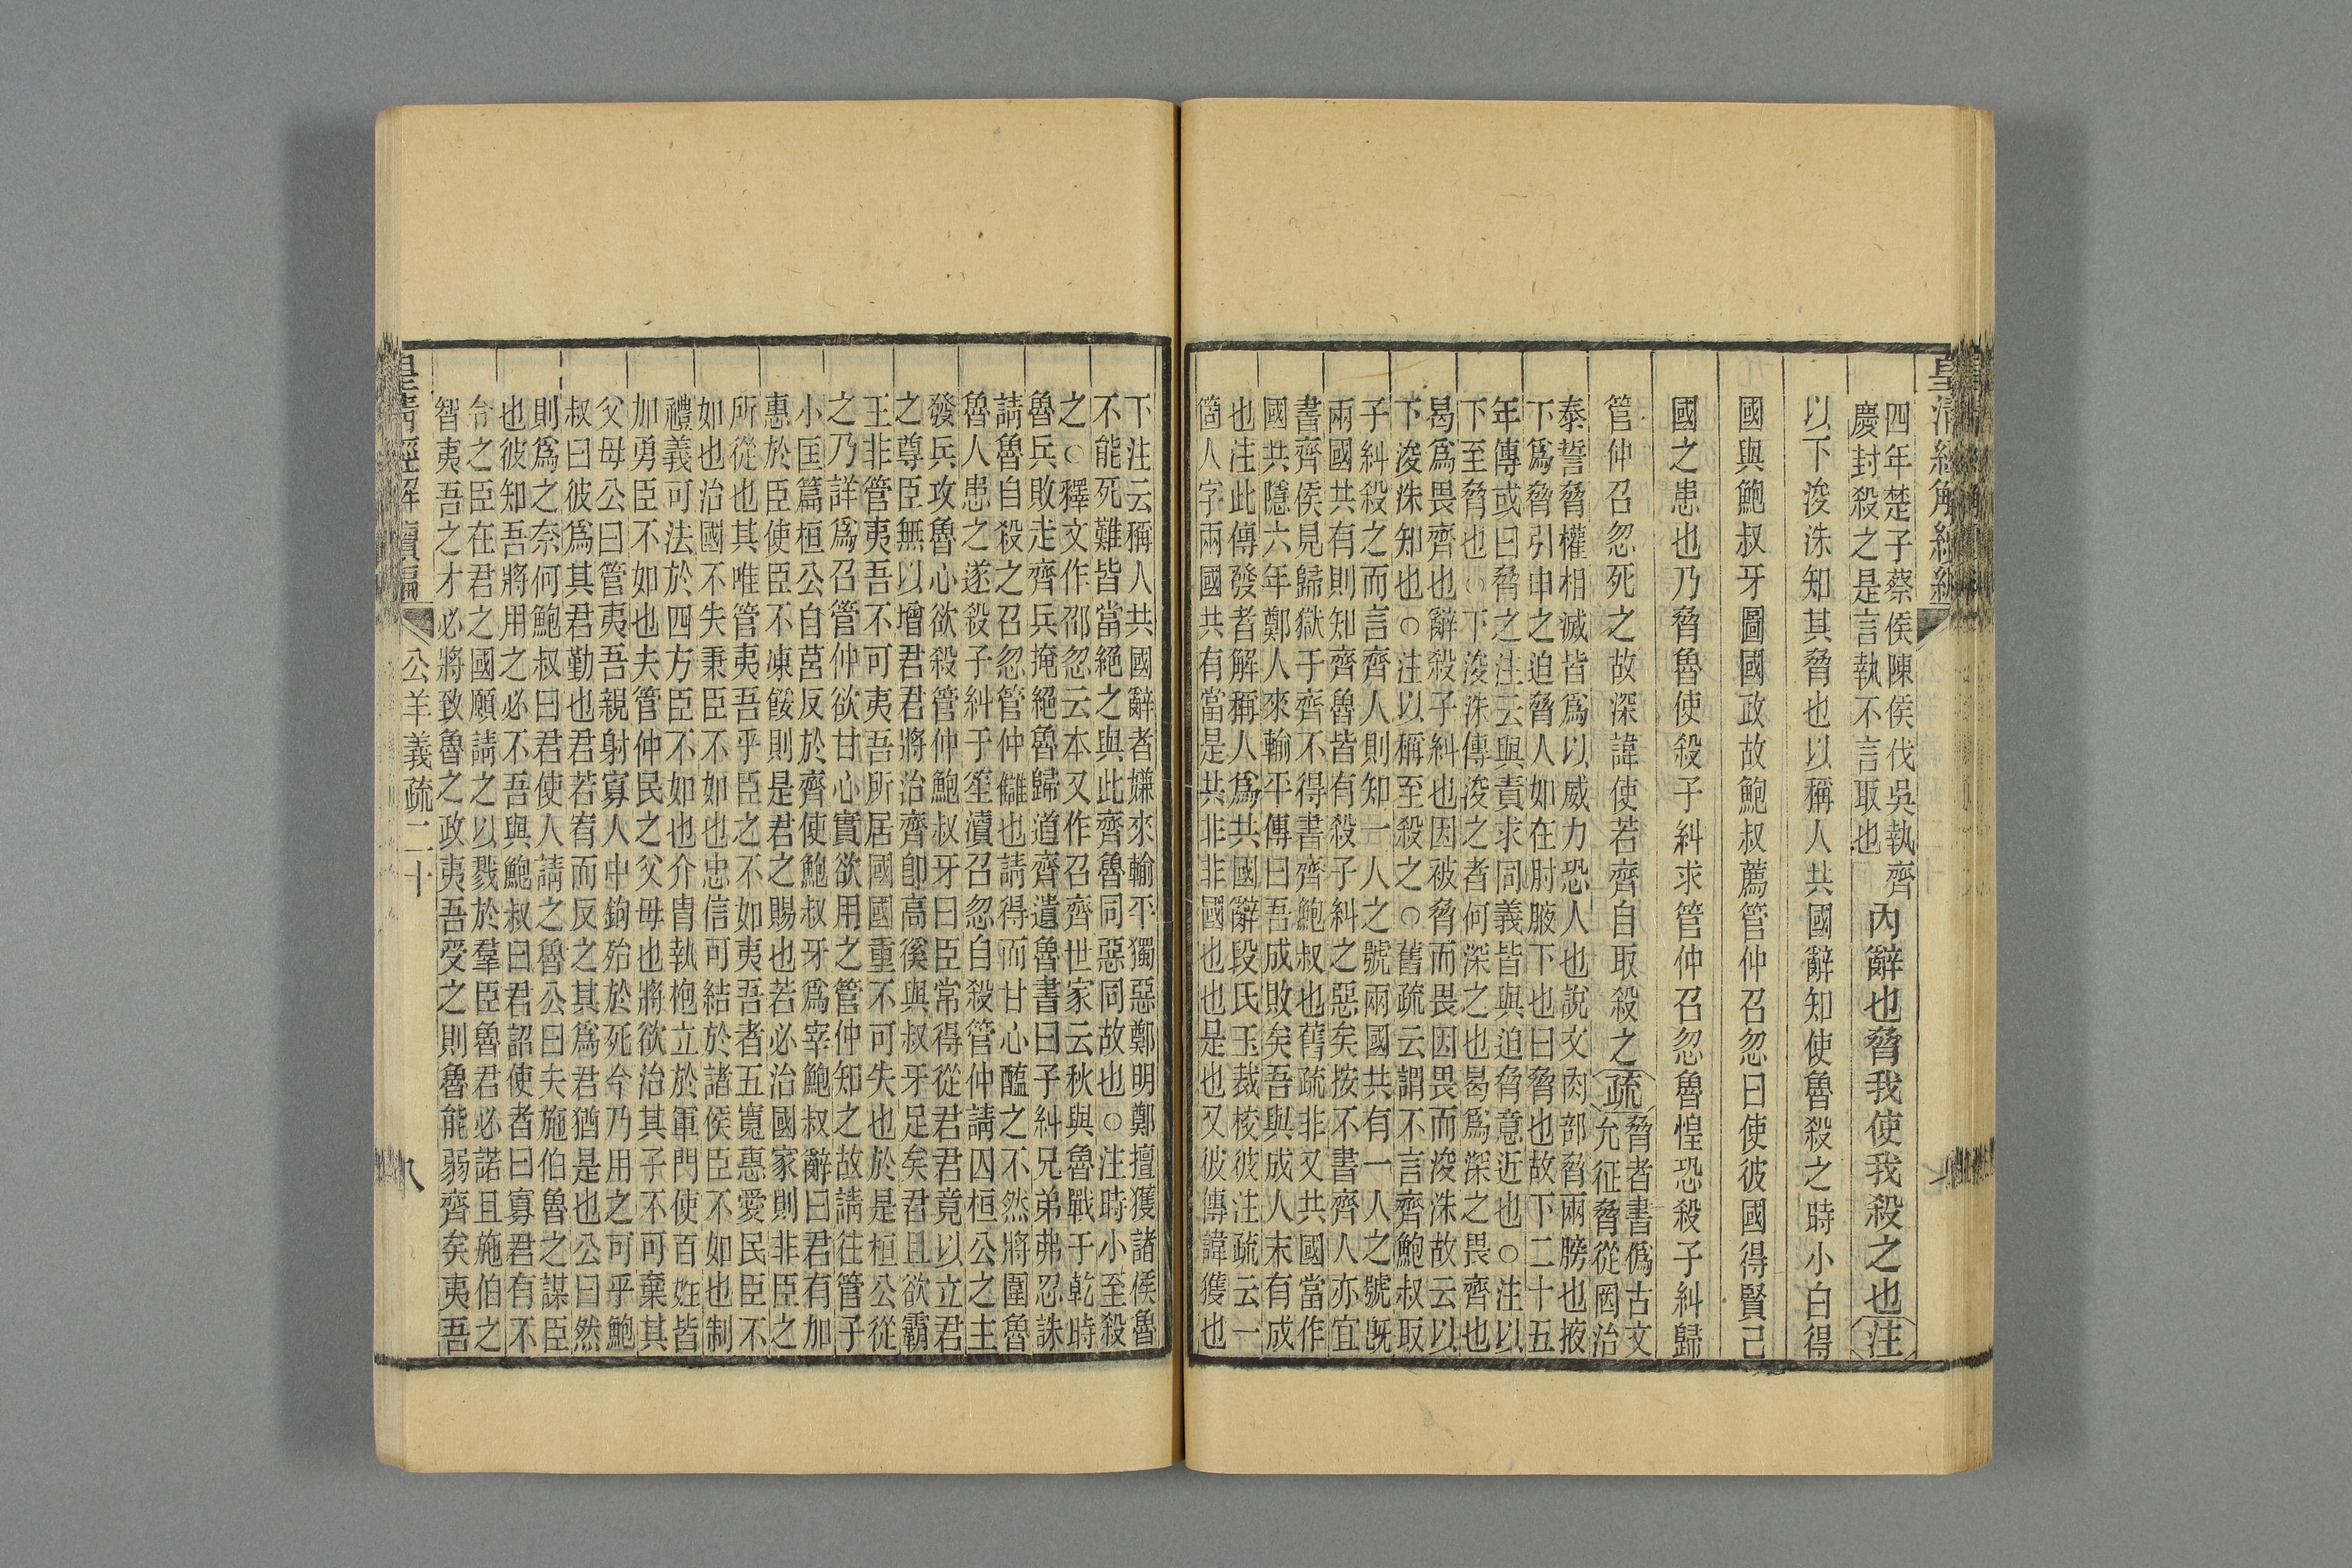 皇清經解續編
四年楚子蔡侯陳侯伐吳執齊
慶封殺之是言執不言取也
內辭也脅我使我殺之也注
以下浚洙知其脅也以稱人共國辭知使魯殺之時小白得
國與鮑叔牙圖國政故鮑叔薦管仲召忽曰使彼國得賢己
國之患也乃脅魯使殺子糾求管仲召忽魯惶恐殺子糾歸
管仲召忽死之故深諱使若齊自取殺之疏
脅者書僞古文
允征脅從罔治
泰誓脅權相滅皆爲以威力恐人也說文肉部脅兩膀也掖
下爲脅引申之迫脅人如在肘腋下也曰脅也故下二十五
年傳或曰脅之注云與責求同義皆與迫脅意近也○注以
下至脅也○下浚洙傳浚之者何深之也曷爲深之畏齊也
曷爲畏齊也辭殺子糾也因被脅而畏因畏而浚洙故云以
下浚洙知也○注以稱至殺之○舊疏云謂不言齊鮑叔取
子糾殺之而言齊人則知一人之號兩國共有一人之號既
兩國共有則知齊魯皆有殺子糾之惡矣按不書齊人亦宜
書齊侯見歸獄于齊不得書齊鮑叔也舊疏非又共國當作
國共隱六年鄭人來輸平傳曰吾成敗矣吾與成人末有成
也注此傳發者解稱人爲共國辭段氏玉裁校彼注疏云一
箇人字兩國共有當是共非非國也也是也又彼傳諱獲也
下注云稱人共國辭者嫌來輸平獨惡鄭明鄭擅獲諸侯魯
不能死難皆當絕之與此齊魯同惡同故也○注時小至殺
之○釋文作邵忽云本又作召齊世家云秋與魯戰于乾時
魯兵敗走齊兵掩絕魯歸道齊遺魯書曰子糾兄弟弗忍誅
請魯自殺之召忽管仲讎也請得而甘心醢之不然將圍魯
魯人患之遂殺子糾于笙瀆召忽自殺管仲請囚桓公之主
發兵攻魯心欲殺管仲鮑叔牙曰臣常得從君君竟以立君
之尊臣無以增君君將治齊卽高傒與叔牙足矣君且欲霸
王非管夷吾不可夷吾所居國國重不可失也於是桓公從
之乃詳爲召管仲欲甘心實欲用之管仲知之故請往管子
小匡篇桓公自莒反於齊使鮑叔牙爲宰鮑叔辭曰君有加
惠於臣使臣不凍餒則是君之賜也若必治國家則非臣之
所從也其唯管夷吾乎臣之不如夷吾者五寬惠愛民臣不
如也治國不失秉臣不如也忠信可結於諸侯臣不如也制
禮義可法於四方臣不如也介冑執枹立於軍門使百姓皆
加勇臣不如也夫管仲民之父母也將欲治其子不可棄其
父母公曰管夷吾親射寡人中鉤殆於死今乃用之可乎鮑
叔曰彼爲其君勤也君若宥而反之其爲君猶是也公曰然
則爲之奈何鮑叔曰君使人請之魯公曰夫施伯魯之謀臣
也彼知吾將用之必不吾與鮑叔曰君詔使者曰寡君有不
令之臣在君之國願請之以戮於羣臣魯君必諾且施伯之
智夷吾之才必將致魯之政夷吾受之則魯能弱齊矣夷吾
皇清經解續編 公羊義疏二十 八